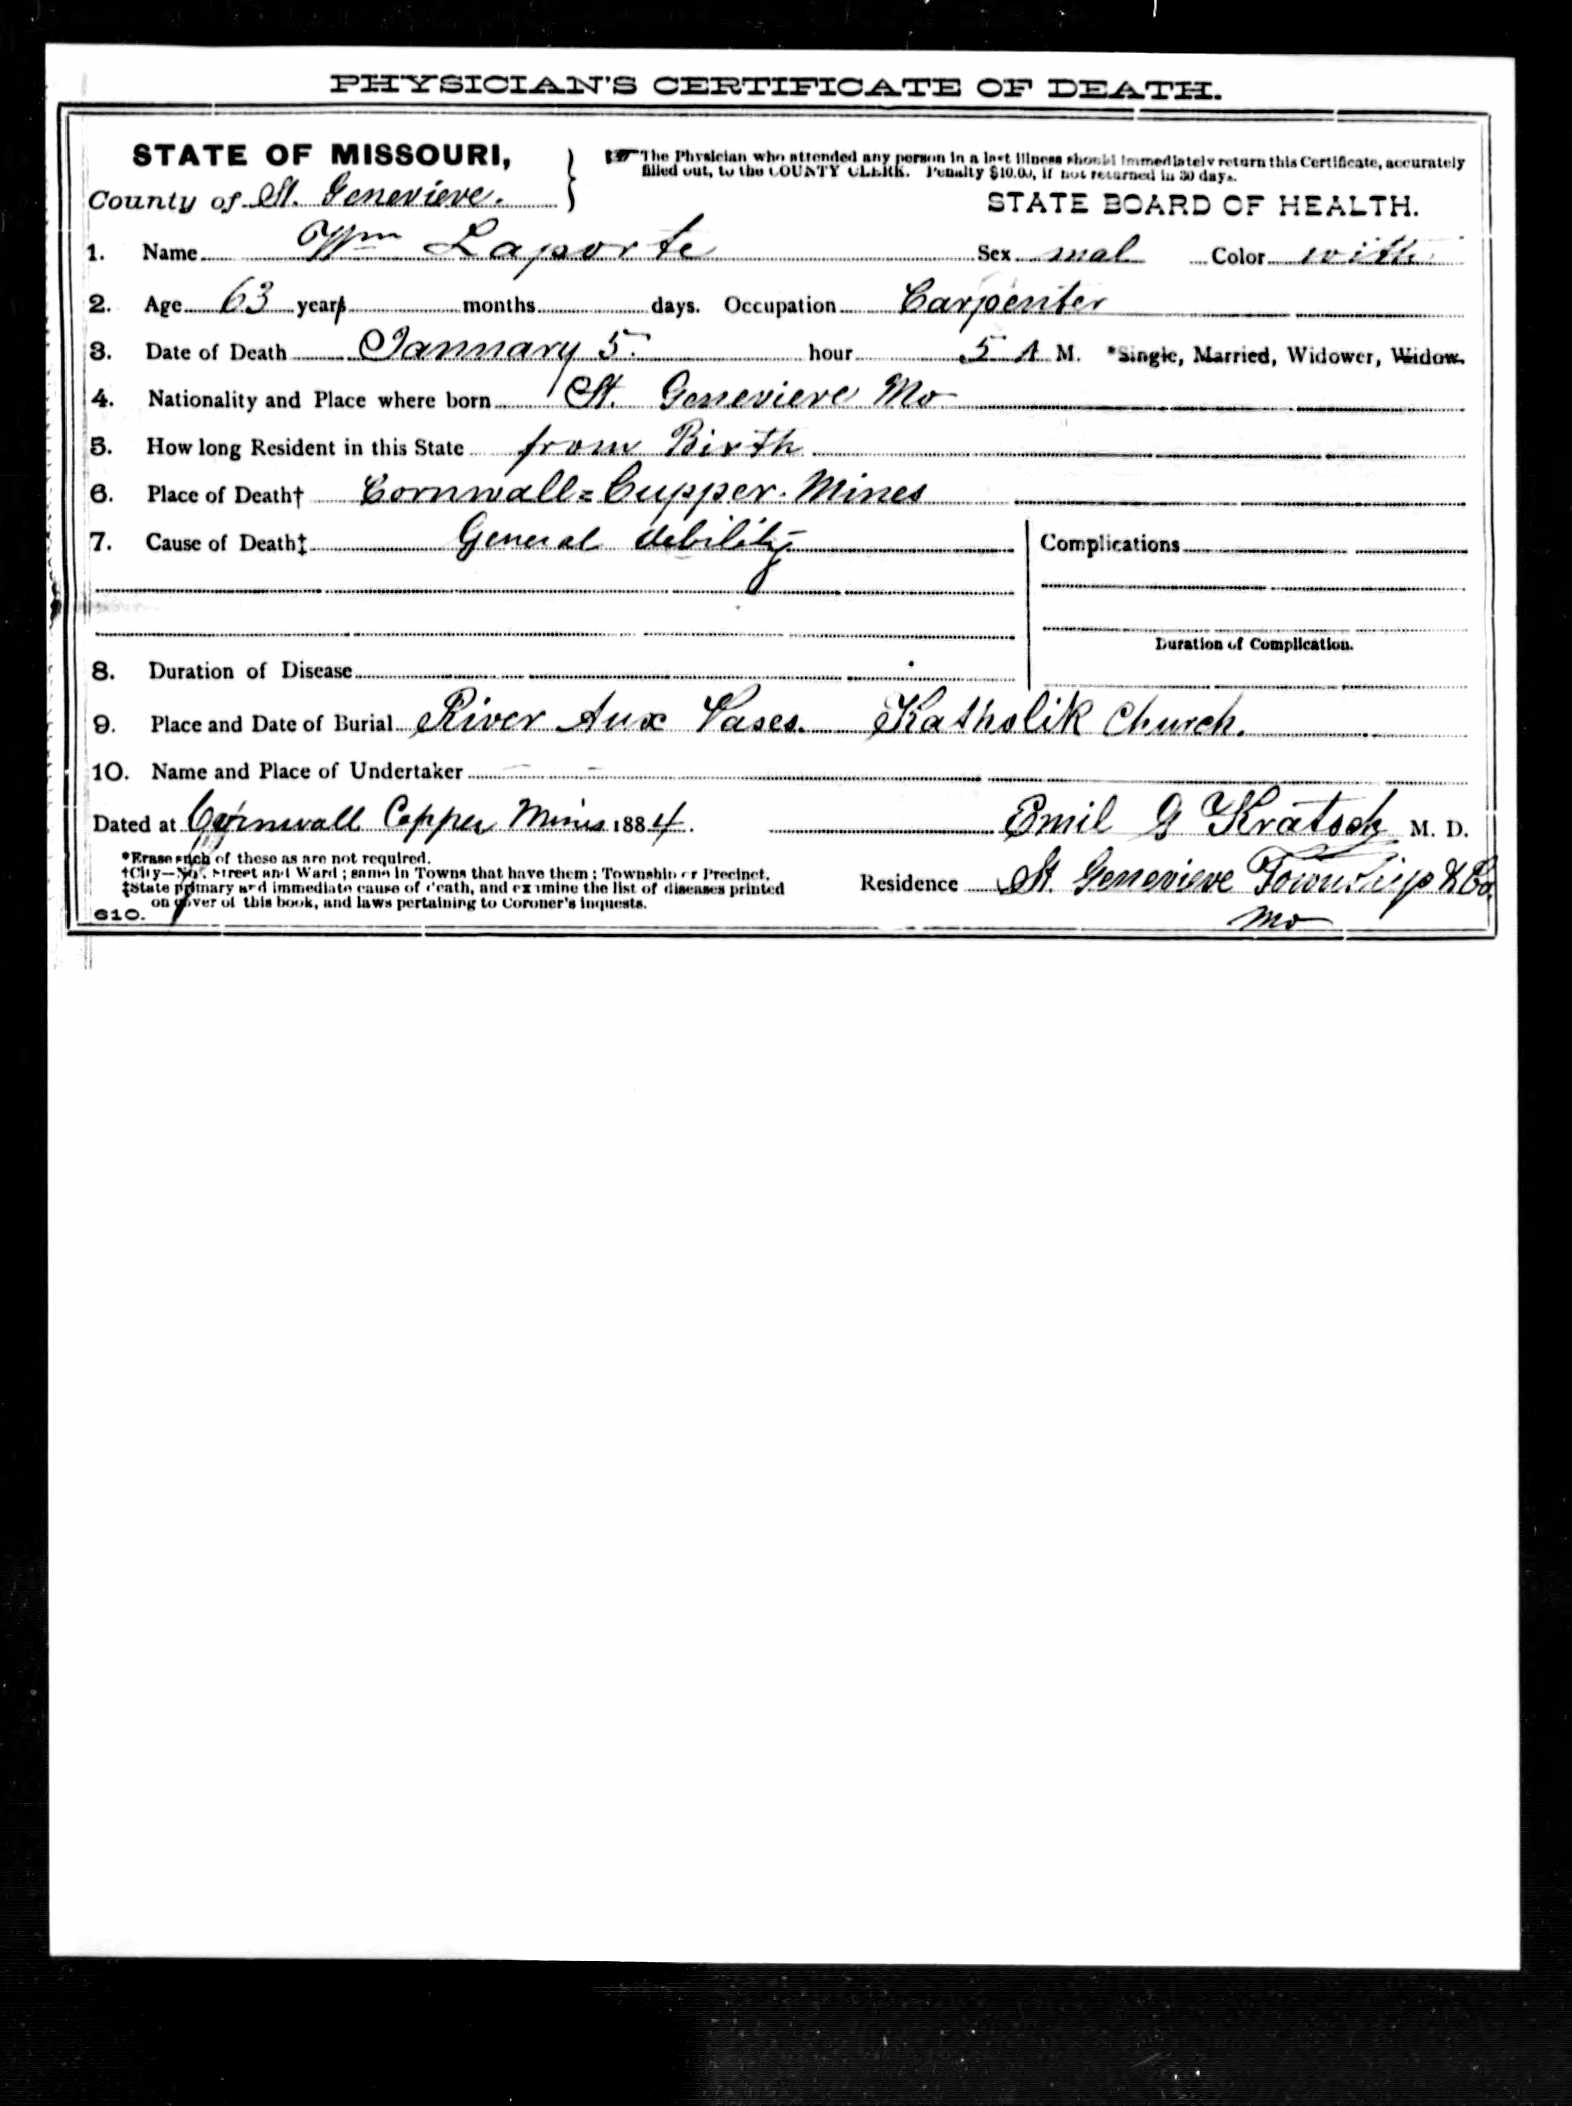 PHYSICIAN'S CERTIFICATE OF DEATH.
STATE OF MISSOURI,
County of St. Genevieve.
The Physician who attended any person in a last illness should immediately return this Certificate, accurately
filled out, to the COUNTY CLERK. Penalty $10.00, if not returned in 30 days.
STATE BOARD OF HEALTH.
1. Name Wm Laporte Sex mal Color with
2. Age 63 years months days. Occupation Carpenter
3. Date of Death January 5. hour 5 A M. *Single, Married, Widower, Widow.
4. Nationality and Place where born St. Genevieve Mo
5. How long Resident in this State from Birth
6. Place of Death† Cornwall=Cupper. Mines
7. Cause of Death‡ General debility Complications
Duration of Complication.
8. Duration of Disease
9. Place and Date of Burial River Aux Vases. Katholik Church.
10. Name and Place of Undertaker
Dated at Cornwall Copper Mines 1884. Emil G Kratsch M. D.
*Erase such of these as are not required.
†City—No. Street and Ward; same in Towns that have them; Township or Precinct.
‡State primary and immediate cause of death, and examine the list of diseases printed
on cover of this book, and laws pertaining to Coroner's inquests.
Residence St. Genevieve Township & Co.
Mo
610.